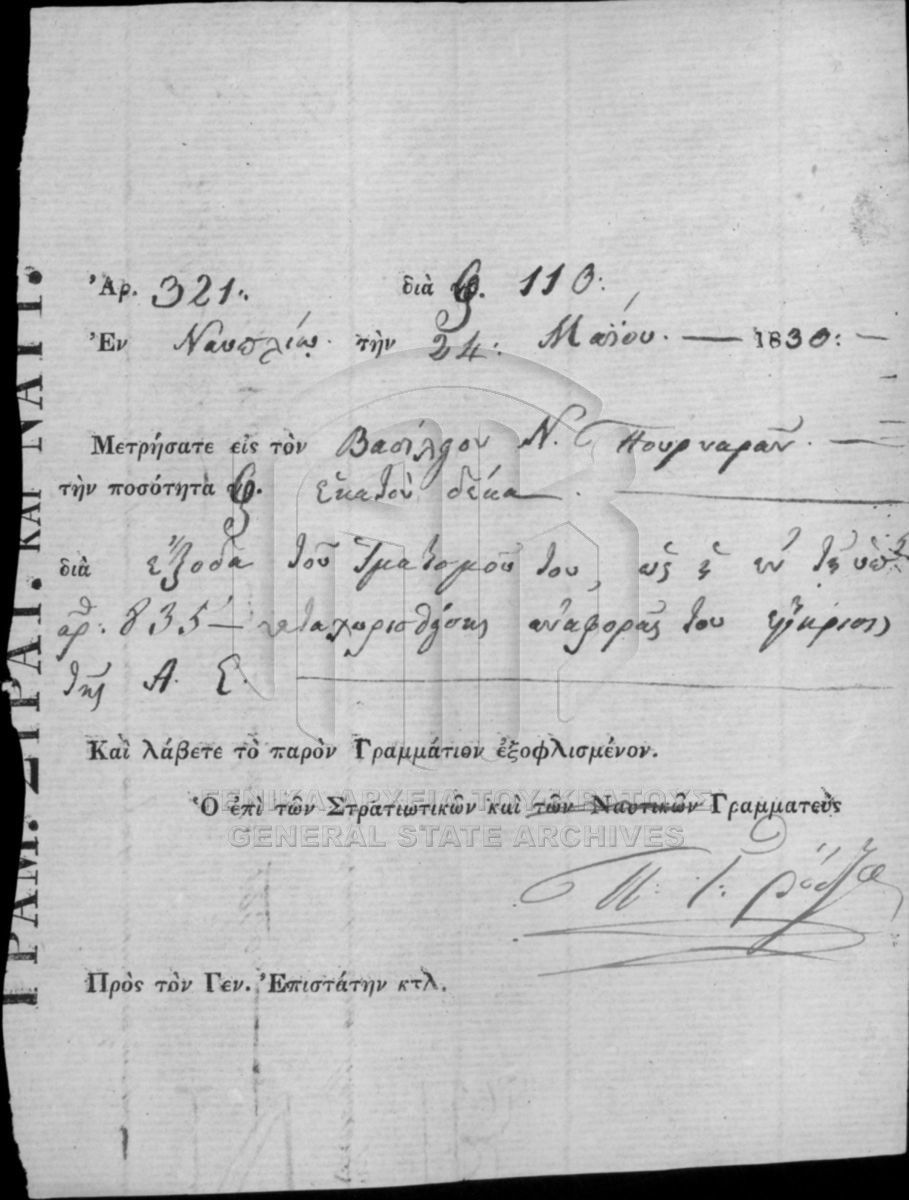 ΓΡΑΜ. ΣΤΡΑΤ. ΚΑΙ ΝΑΥΤ.
Ἀρ. 321. διὰ 110:
Ἐν Ναυπλίῳ. τὴν 24: Μαΐου. — 1830: —
Μετρήσατε εἰς τὸν Βασίλειον Ν. Πουρναρᾶν. —
τὴν ποσότητα ἑκατὸν δέκα —.
διὰ ἔξοδα τοῦ ἱματισμοῦ του, ὡς ἡ ἐν τῇ ὑπ'
ἀρ: 835 — καταχωρισθείσης ἀναφορᾶς του ἔγκρισις
τῆς Α. Ε. —
Καὶ λάβετε τὸ παρὸν Γραμμάτιον ἐξοφλισμένον.
Ὁ ἐπὶ τῶν Στρατιωτικῶν καὶ τῶν Ναυτικῶν Γραμματεὺς
ΓΕΝΙΚΑ ΑΡΧΕΙΑ ΤΟΥ ΚΡΑΤΟΥΣ
GENERAL STATE ARCHIVES
Πρὸς τὸν Γεν. Ἐπιστάτην κτλ.